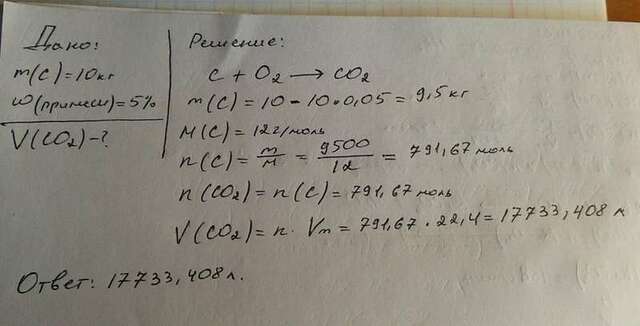 Дано:
m(C)=10кг
ω(примеси)=5%
V(CO₂)-?
Решение:
C + O₂ → CO₂
m(C) = 10 - 10 • 0,05 = 9,5 кг
M(C) = 12г/моль
n(C) = m/M = 9500/12 = 791,67 моль
n(CO₂) = n(C) = 791,67 моль
V(CO₂) = n • Vm = 791,67 • 22,4 = 17733,408 л
Ответ: 17733,408 л.